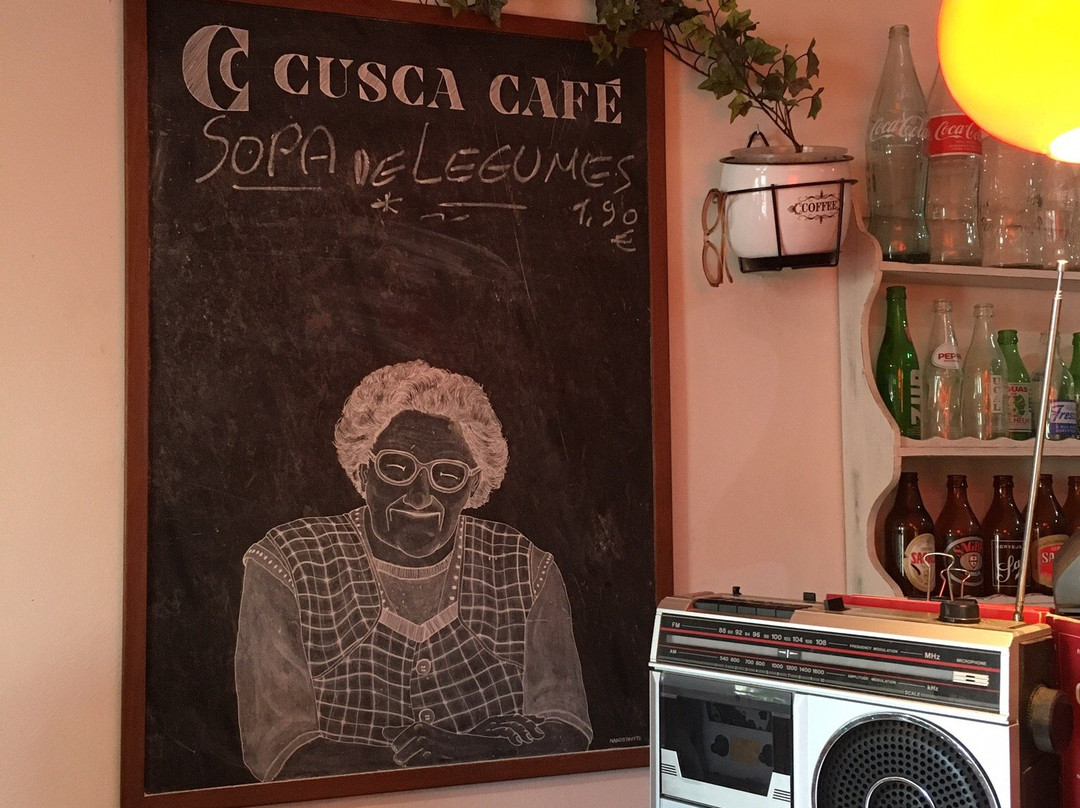 Cc CUSCA CAFÉ
SOPA DE LEGUMES
*
1,90
€
COFFEE
Coca-Cola
Coca-Cola
PEPSI
FM 88 92 94 96 98 100 104 106 108 FREQUENCY MODULATION MHz MICROPHONE
AM 540 600 700 800 1000 1200 1400 1600 AMPLITUDE MODULATION kHz
SCALE